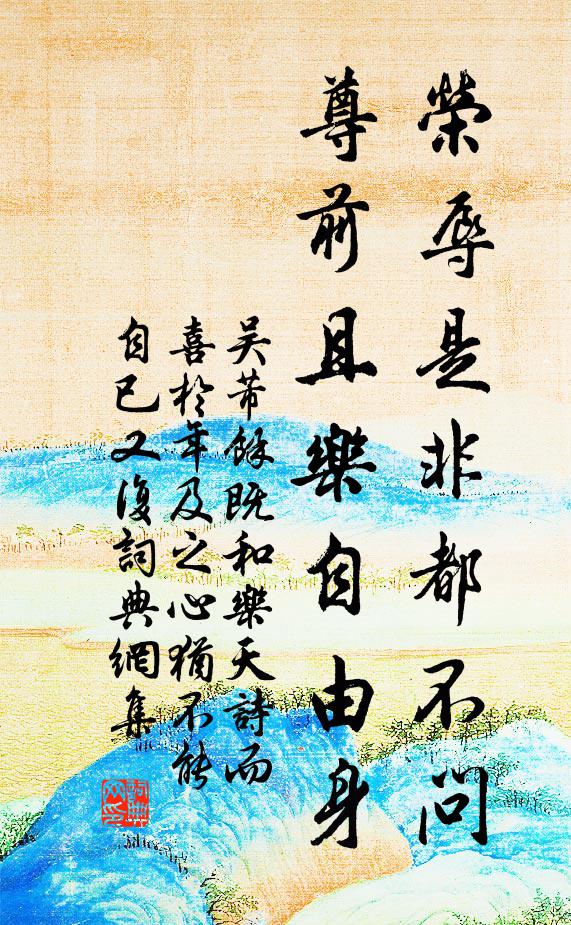 榮辱是非都不問
尊前且樂自由身
吴芾餘既和樂天詩而
喜於年及之心猶不能
自已又復詞典網集